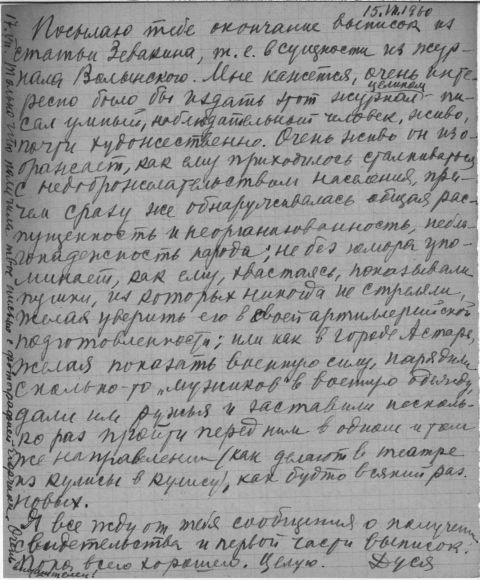 15.IV.1960
Посылаю тебе окончание выписок из
статьи Зевакина, т.е. в сущности из жур-
нала Волынского. Мне кажется, очень инте-
ресно было бы издать этот журнал целиком - пи-
сал умный, наблюдательный человек, живо,
почти художественно. Очень живо он изо-
бражает, как ему приходилось сталкиваться
с недоброжелательством населения, при-
чем сразу же обнаруживалась общая рас-
пущенность и неорганизованность, небла-
гонадежность народа; не без юмора упо-
минает, как ему, хвастаясь, показывали
пушки, из которых никогда не стреляли,
желая уверить его в своей артиллерийской
подготовленности; или как в городе Астаре,
желая показать военную силу, нарядили
сколько-то „мужиков" в военную одежду,
дали им ружья и заставили несколь-
ко раз пройти перед ним в одном и том
же направлении (как делают в театре
из кулисы в кулису), как будто всякий раз
новых.
Я все жду от тебя сообщения о получении
свидетельства и первой части выписок.
всего хорошего. Целую. Дуся
Только что получила твое письмо с фотографией Очень